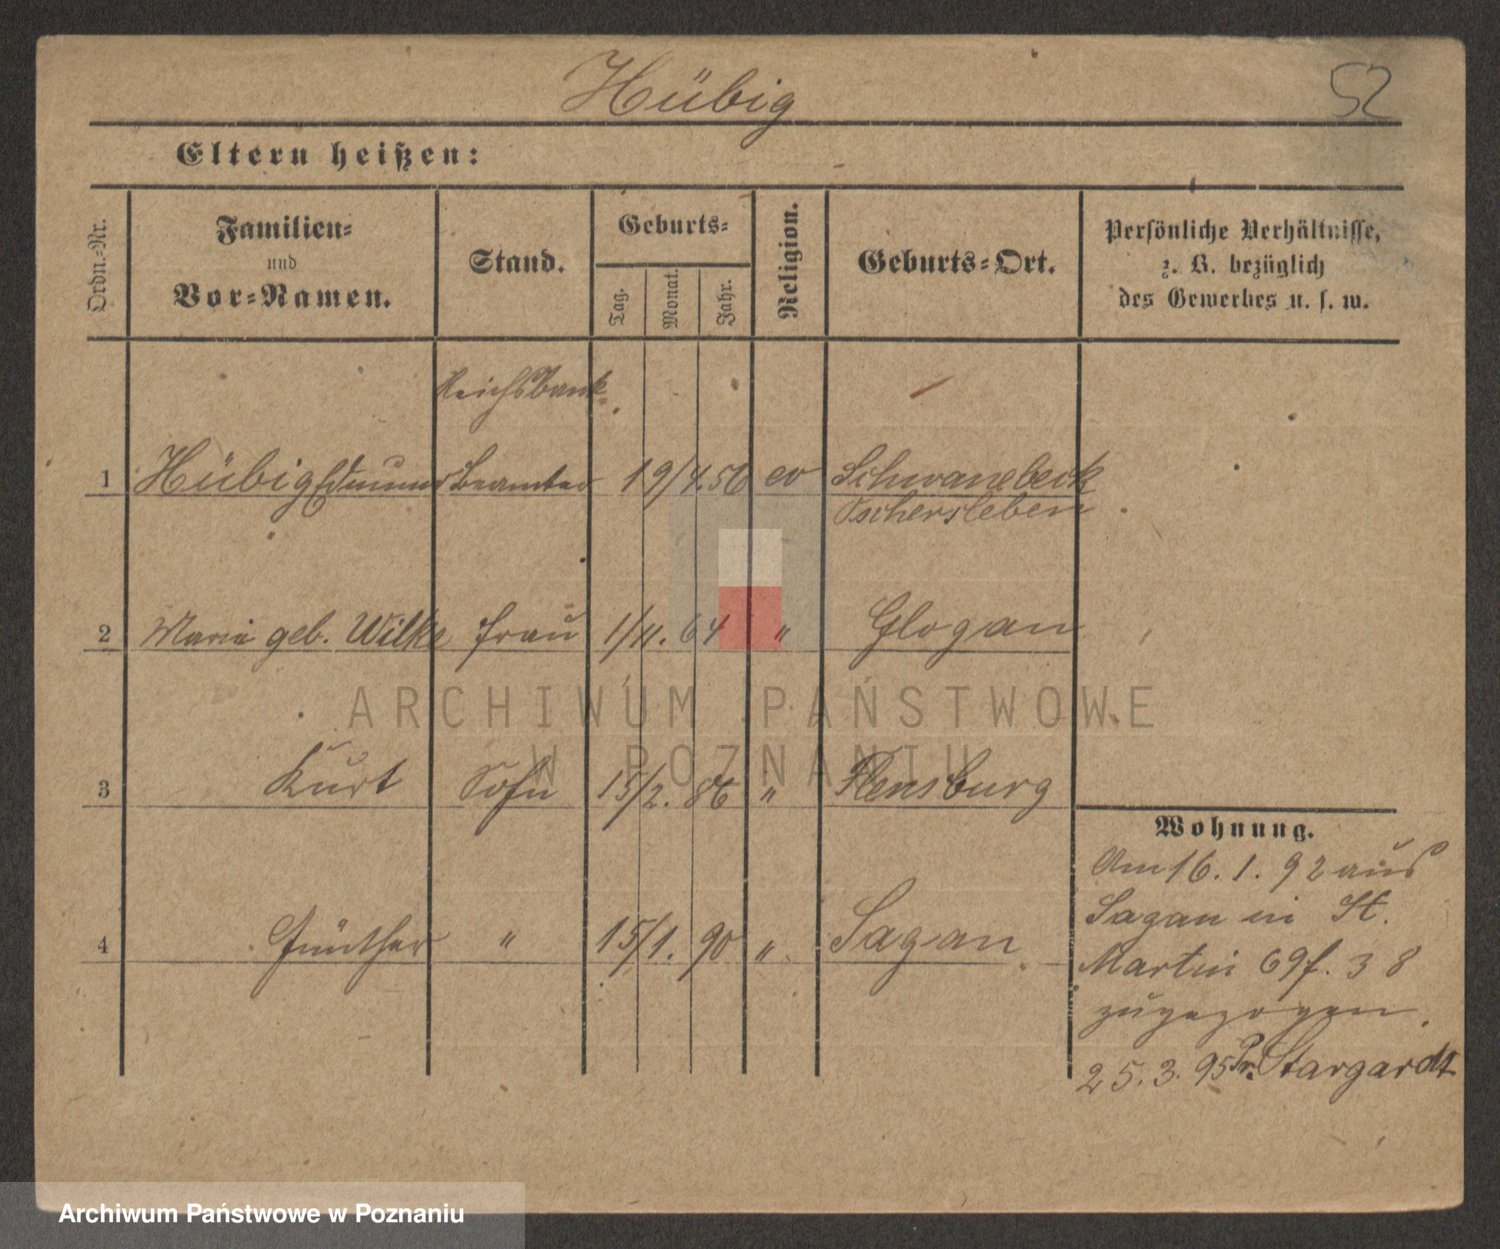 Hübig
52
Eltern heißen:
Ordn.-Nr.
Familien-
und
Vor-Namen.
Stand.
Geburts-
Tag.
Monat.
Jahr.
Religion.
Geburts-Ort.
Persönliche Verhältnisse,
z. B. bezüglich
des Gewerbes u. s. w.
Reichsbank-
1 Hübig Edmund Beamter 19/4.56 ev Schwanebeck
Oschersleben
2 Maria geb. Wilke Frau 1/11. 64 " Glogau
3 Kurt Sohn 15/2. 86 " Flensburg
4 Günther " 15/1. 90 " Sagan
Wohnung.
Am 16. 1. 92 aus
Sagan in St.
Martin 69 f. 38
zugezogen.
25. 3. 95 Pr. Stargardt
ARCHIWUM PAŃSTWOWE
W POZNANIU
Archiwum Państwowe w Poznaniu